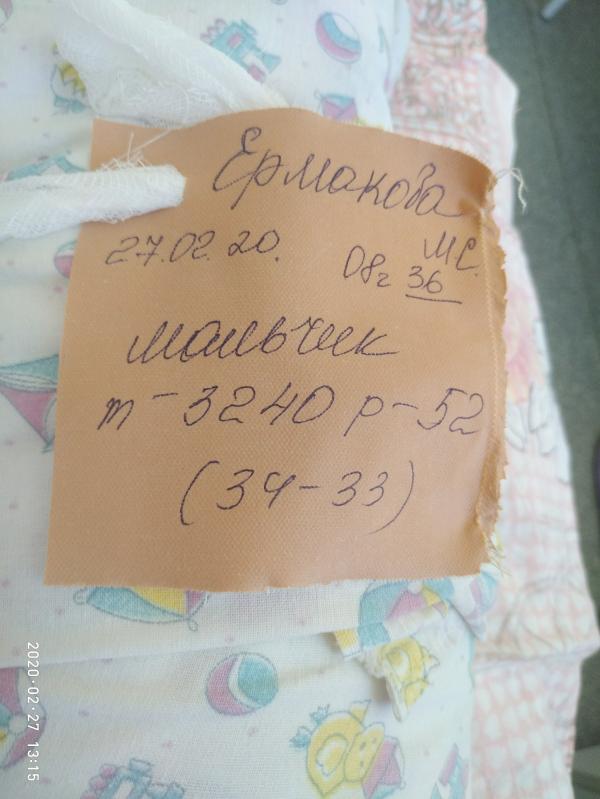 Ермакова
27.02.20. М.С.
08ч 36
мальчик
m - 3240 p - 52
(34 - 33)
2020-02-27 13:15